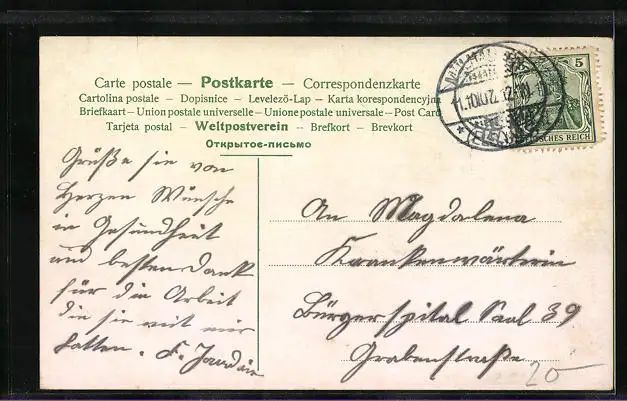 Carte postale — Postkarte — Correspondenzkarte
Cartolina postale – Dopisnice – Levelező-Lap – Karta korespondencyjna
Briefkaart – Union postale universelle – Unione postale universale – Post Card
Tarjeta postal – Weltpostverein – Brefkort – Brevkort
Открытое-письмо
5
DEUTSCHES REICH
Grüße sie von
Herzen Wünsche
in Gesundheit
und besten Dank
für die Arbeit
die sie mit mir
hatten. F.
An Magdalena
Krankenwärterin
Bürgerspital Saal 39
Grabenstraße
20